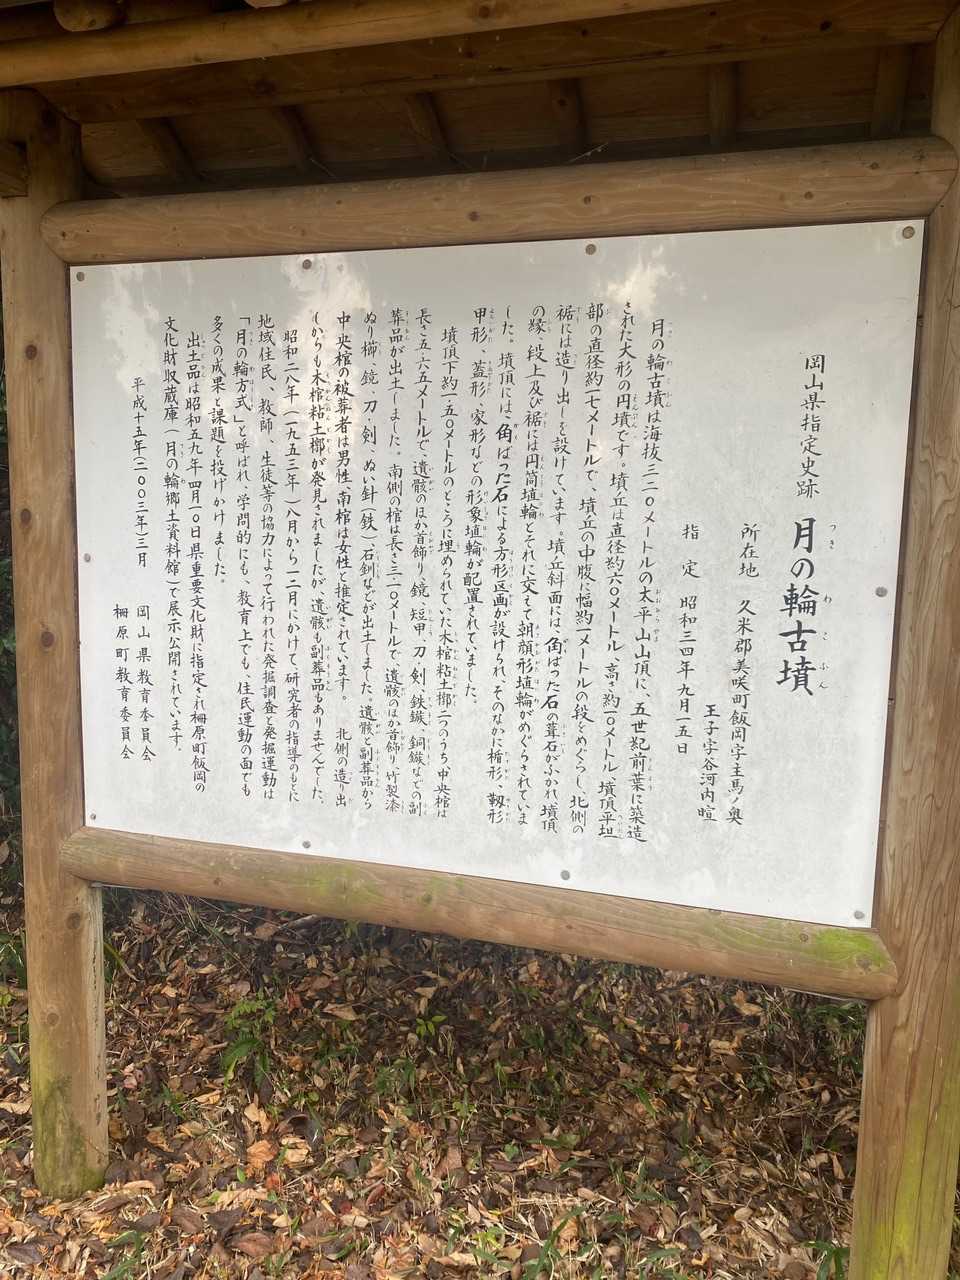 岡山県指定史跡
月の輪古墳
つき わ こ ふん
所在地 久米郡美咲町飯岡字主馬ノ奥
王子字谷河内暄
指定 昭和三四年九月一五日
月の輪古墳は海抜三二〇メートルの太平山山頂に、五世紀前葉に築造
された大形の円墳です。墳丘は直径約六〇メートル、高さ約一〇メートル、墳頂平坦
部の直径約一七メートルで、墳丘の中腹に幅約一メートルの段をめぐらし、北側の
裾には造り出しを設けています。墳丘斜面には、角ばった石の葺石がふかれ、墳頂
の縁、段上及び裾には円筒埴輪とそれに交えて朝顔形埴輪がめぐらされていま
した。墳頂には、角ばった石による方形区画が設けられ、そのなかに楯形、靱形
甲形、蓋形、家形などの形象埴輪が配置されていました。
墳頂下約一・五〇メートルのところに埋められていた木棺粘土槨二のうち、中央棺は
長さ五・六五メートルで、遺骸のほか首飾り、鏡、短甲、刀、剣、鉄鏃、銅鏃などの副
葬品が出土しました。南側の棺は長さ三・一〇メートルで、遺骸のほか首飾り、竹製漆
ぬり櫛、鏡、刀、剣、ぬい針(鉄)、石釧などが出土しました。遺骸と副葬品から
中央棺の被葬者は男性、南棺は女性と推定されています。北側の造り出
しからも木棺粘土槨が発見されましたが、遺骸も副葬品もありませんでした。
昭和二八年(一九五三年)八月から一二月にかけて、研究者の指導のもとに
地域住民、教師、生徒等の協力によって行われた発掘調査と発掘運動は
「月の輪方式」と呼ばれ、学問的にも、教育上でも、住民運動の面でも
多くの成果と課題を投げかけました。
出土品は昭和五九年四月一〇日県重要文化財に指定され柵原町飯岡の
文化財収蔵庫(月の輪郷土資料館)で展示公開されています。
平成十五年(二〇〇三年)三月
岡山県教育委員会
柵原町教育委員会